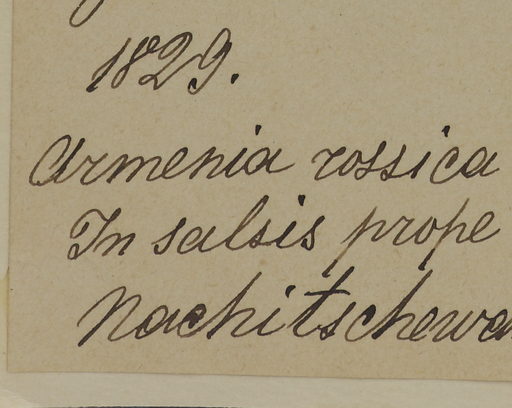 1829.
Armenia rossica
In salsis prope
Nachitschewa